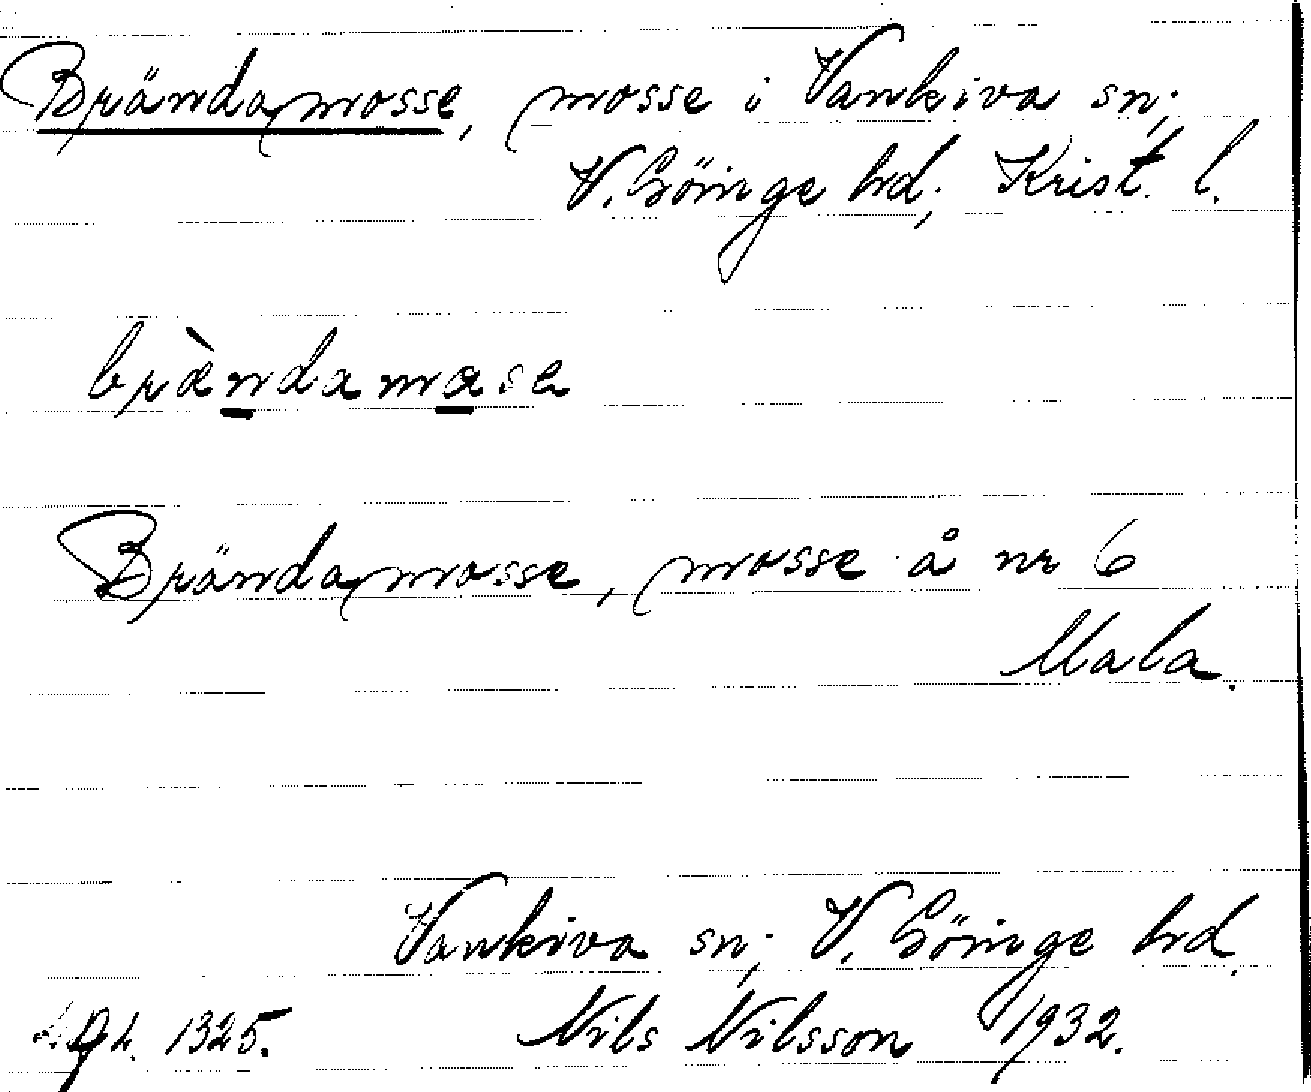 Brändamosse, mosse i Vankiva sn;
V. Göinge hrd; Krist. l.
bràndamase
Brändamosse, mosse å nr 6
Mala.
Vankiva sn; V. Göinge hrd.
1325. Nils Nilsson 1932.